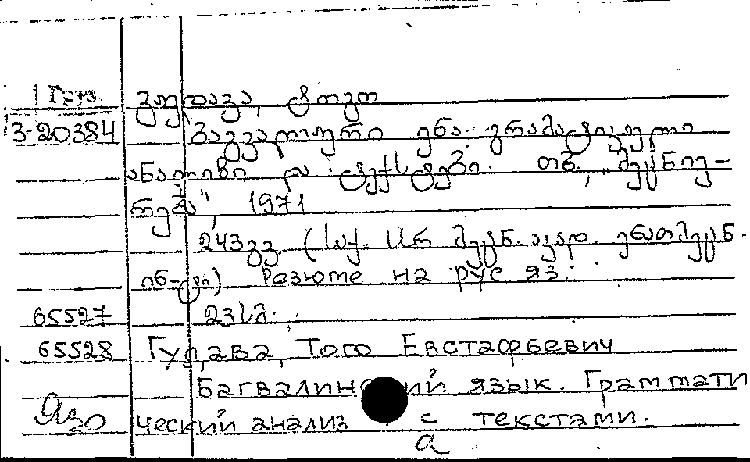 Груз. გუდავა, ტოგო
3-20384 ბაგვალური ენა. გრამატიკული
ანალიზი და ტექსტები. თბ., „მეცნიე-
რება", 1971
243 გვ. (საქ. სსრ მეცნ. აკად. ენათმეცნ.
ინ-ტი) Резюме на рус яз.
65527 23 სმ.
65528 Гудава, Того Евстафьевич
Багвалинский язык. Граммати
ческий анализ с текстами.
Яз0 а